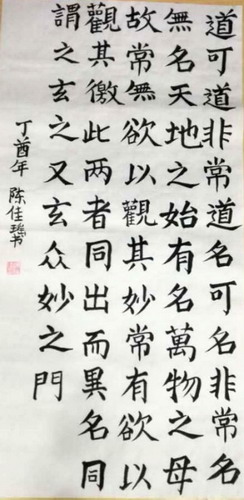 道可道非常道名可名非常名
無名天地之始有名萬物之母
故常無欲以觀其妙常有欲以
觀其徼此两者同出而異名同
謂之玄之又玄众妙之門
丁酉年 陈佳书